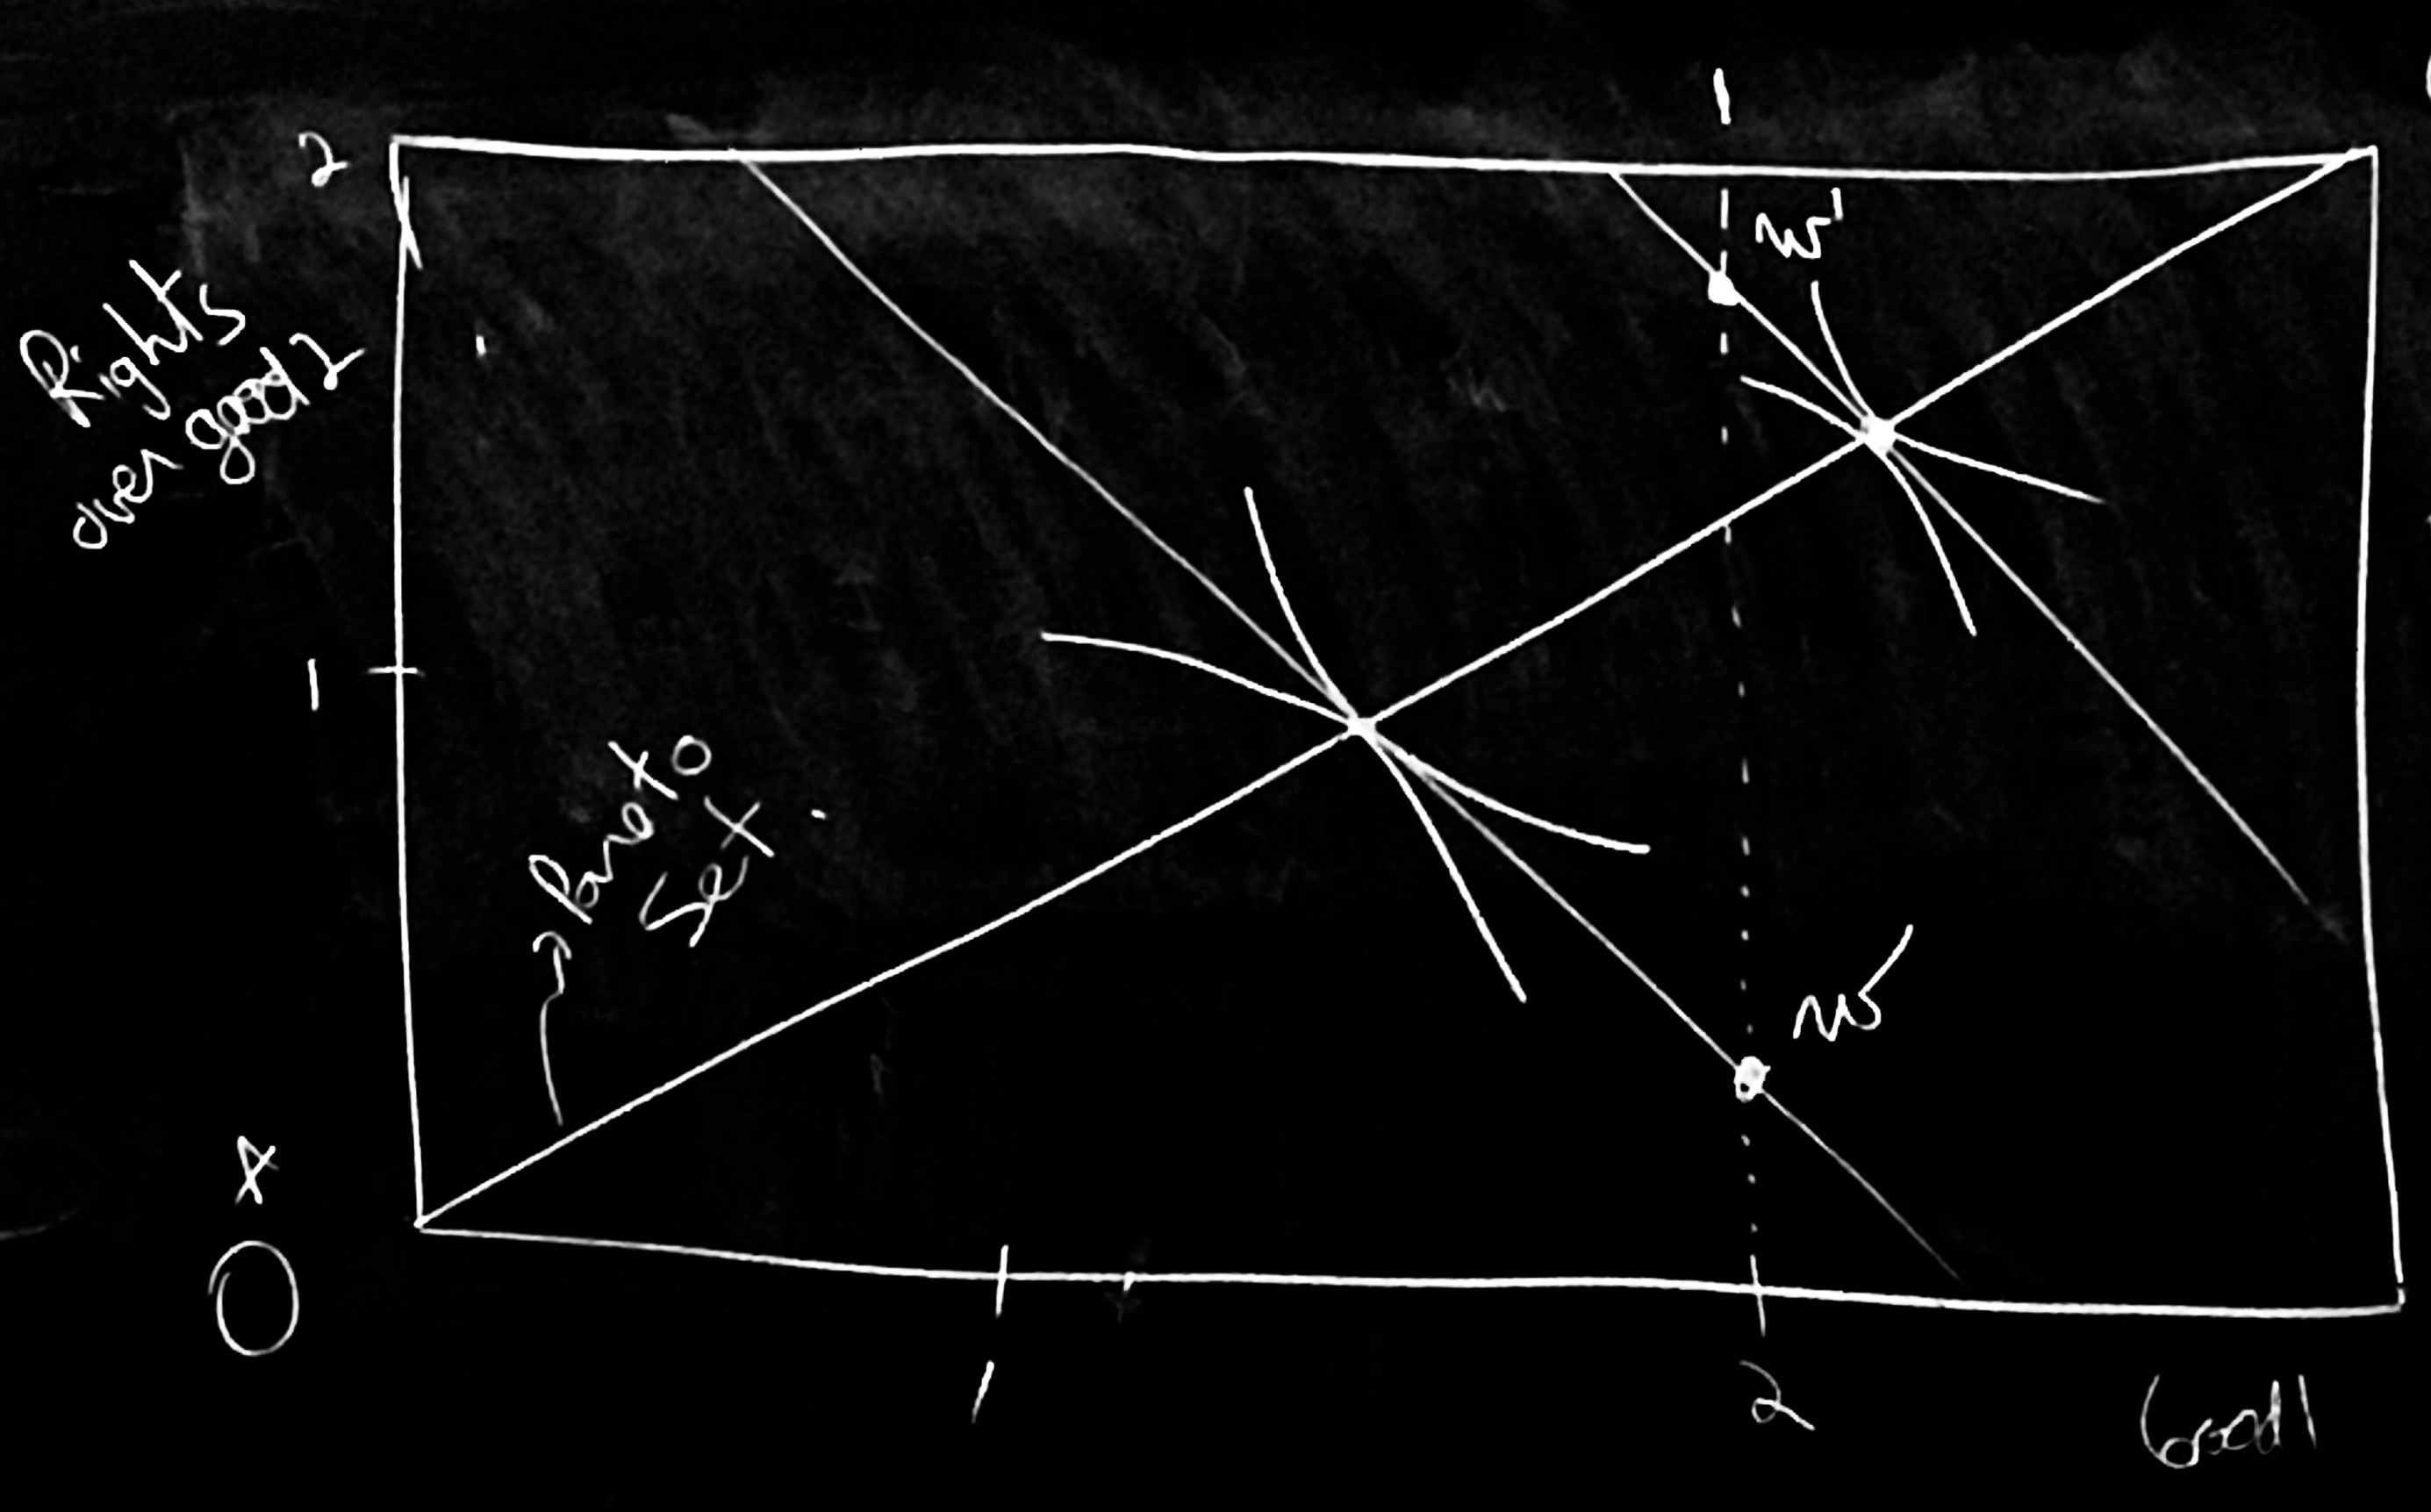 1
2
w'
Rights
over good 2
1
Pareto
Set
w
A
0
1
2
Good 1